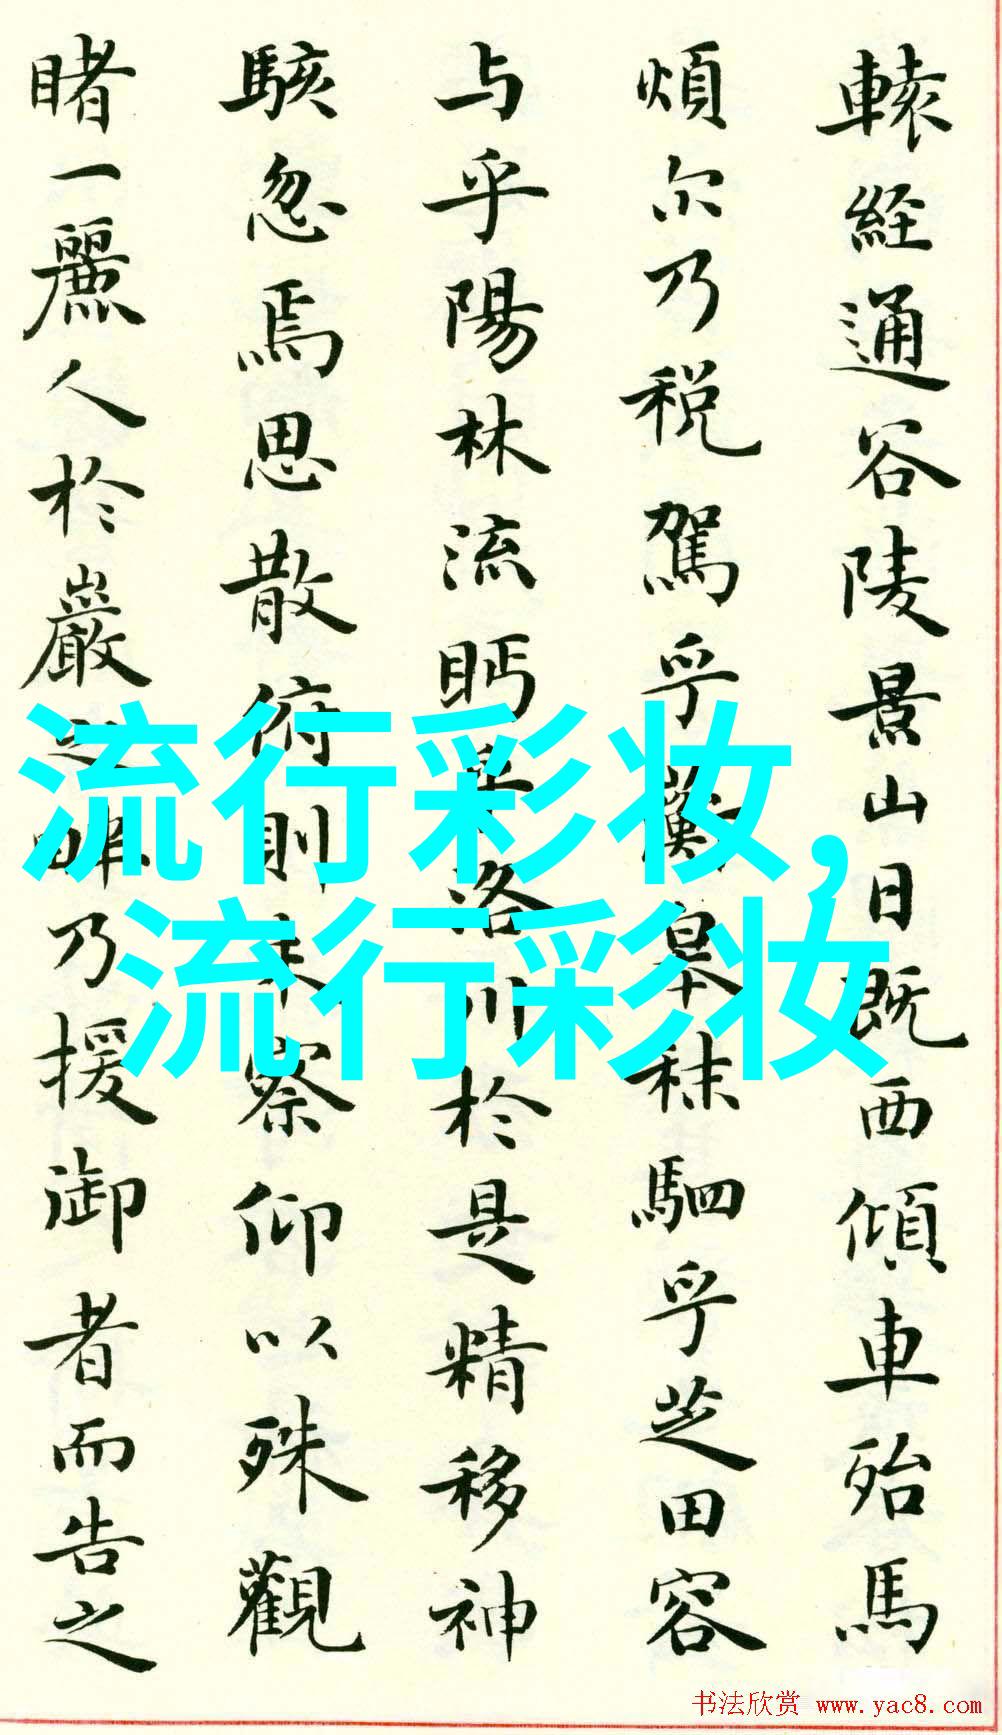 轅経通谷陵景山日既西傾車殆馬
煩尔乃税駕乎蘅皋秣駟乎芝田容
与乎陽林流眄乎洛川於是精移神
駭忽焉思散俯則未察仰以殊觀
睹一麗人於巖之畔乃援御者而告之
流行彩妆,
流行彩妆
书法欣赏 www.yac8.com